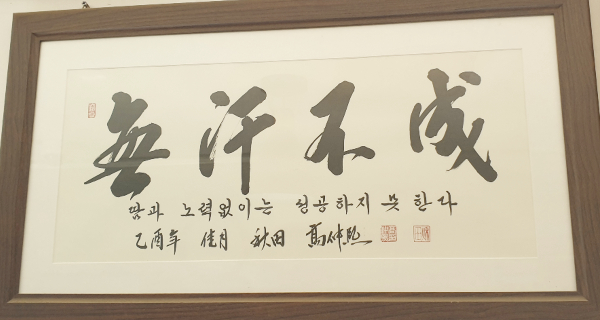 無汗不成
땀과 노력없이는 성공하지 못 한다
乙酉年 佳月 秋田 高仲熙